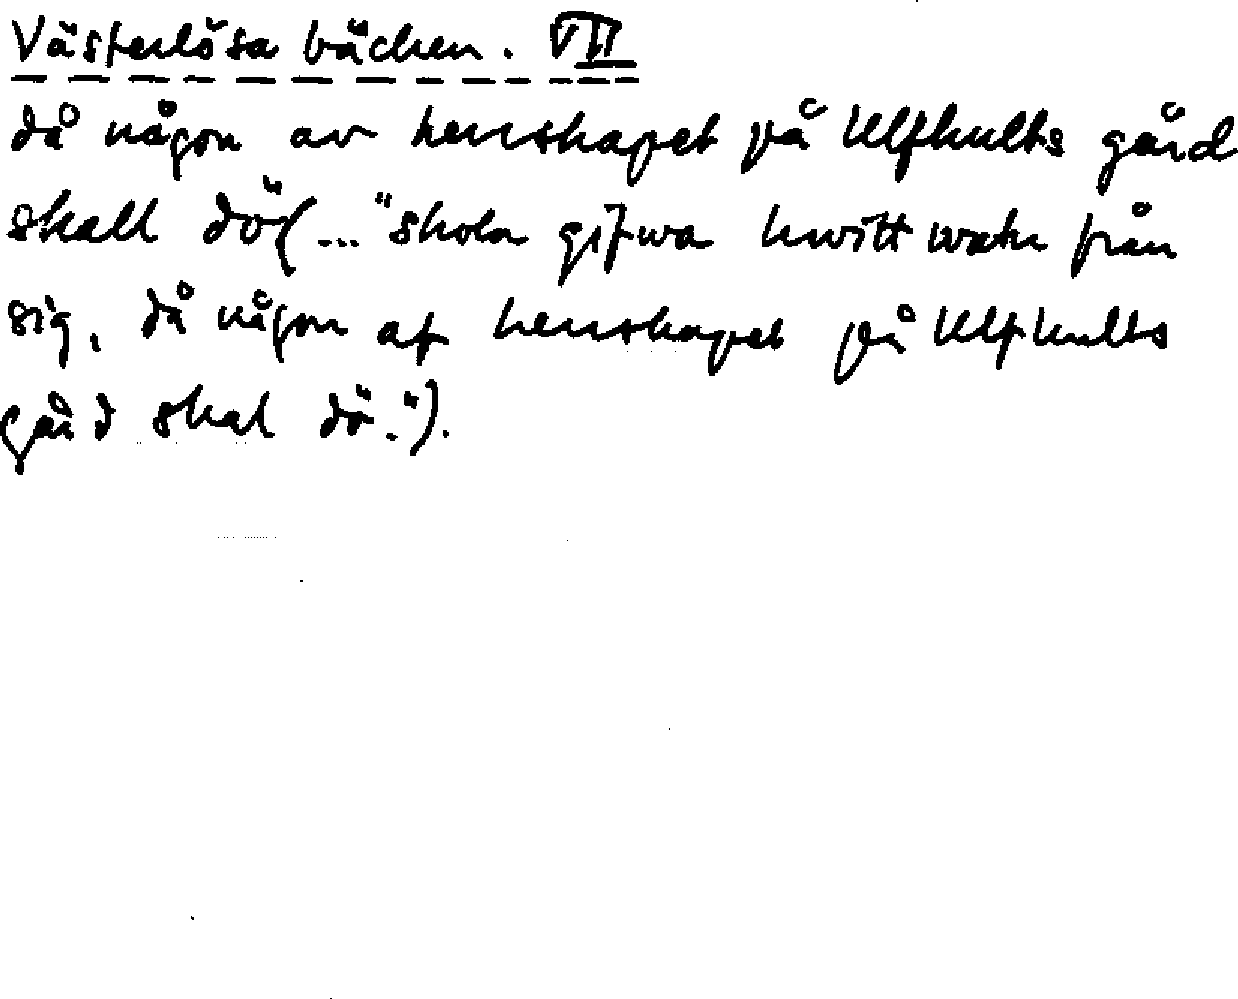 Västerlösa bäcken. VII
då någon av herrskapet på Ulfhults gård
skall dö(... "skola gifwa hwitt watn från
sig, då någon af herrskapet på Ulfhults
gård skal dö.").